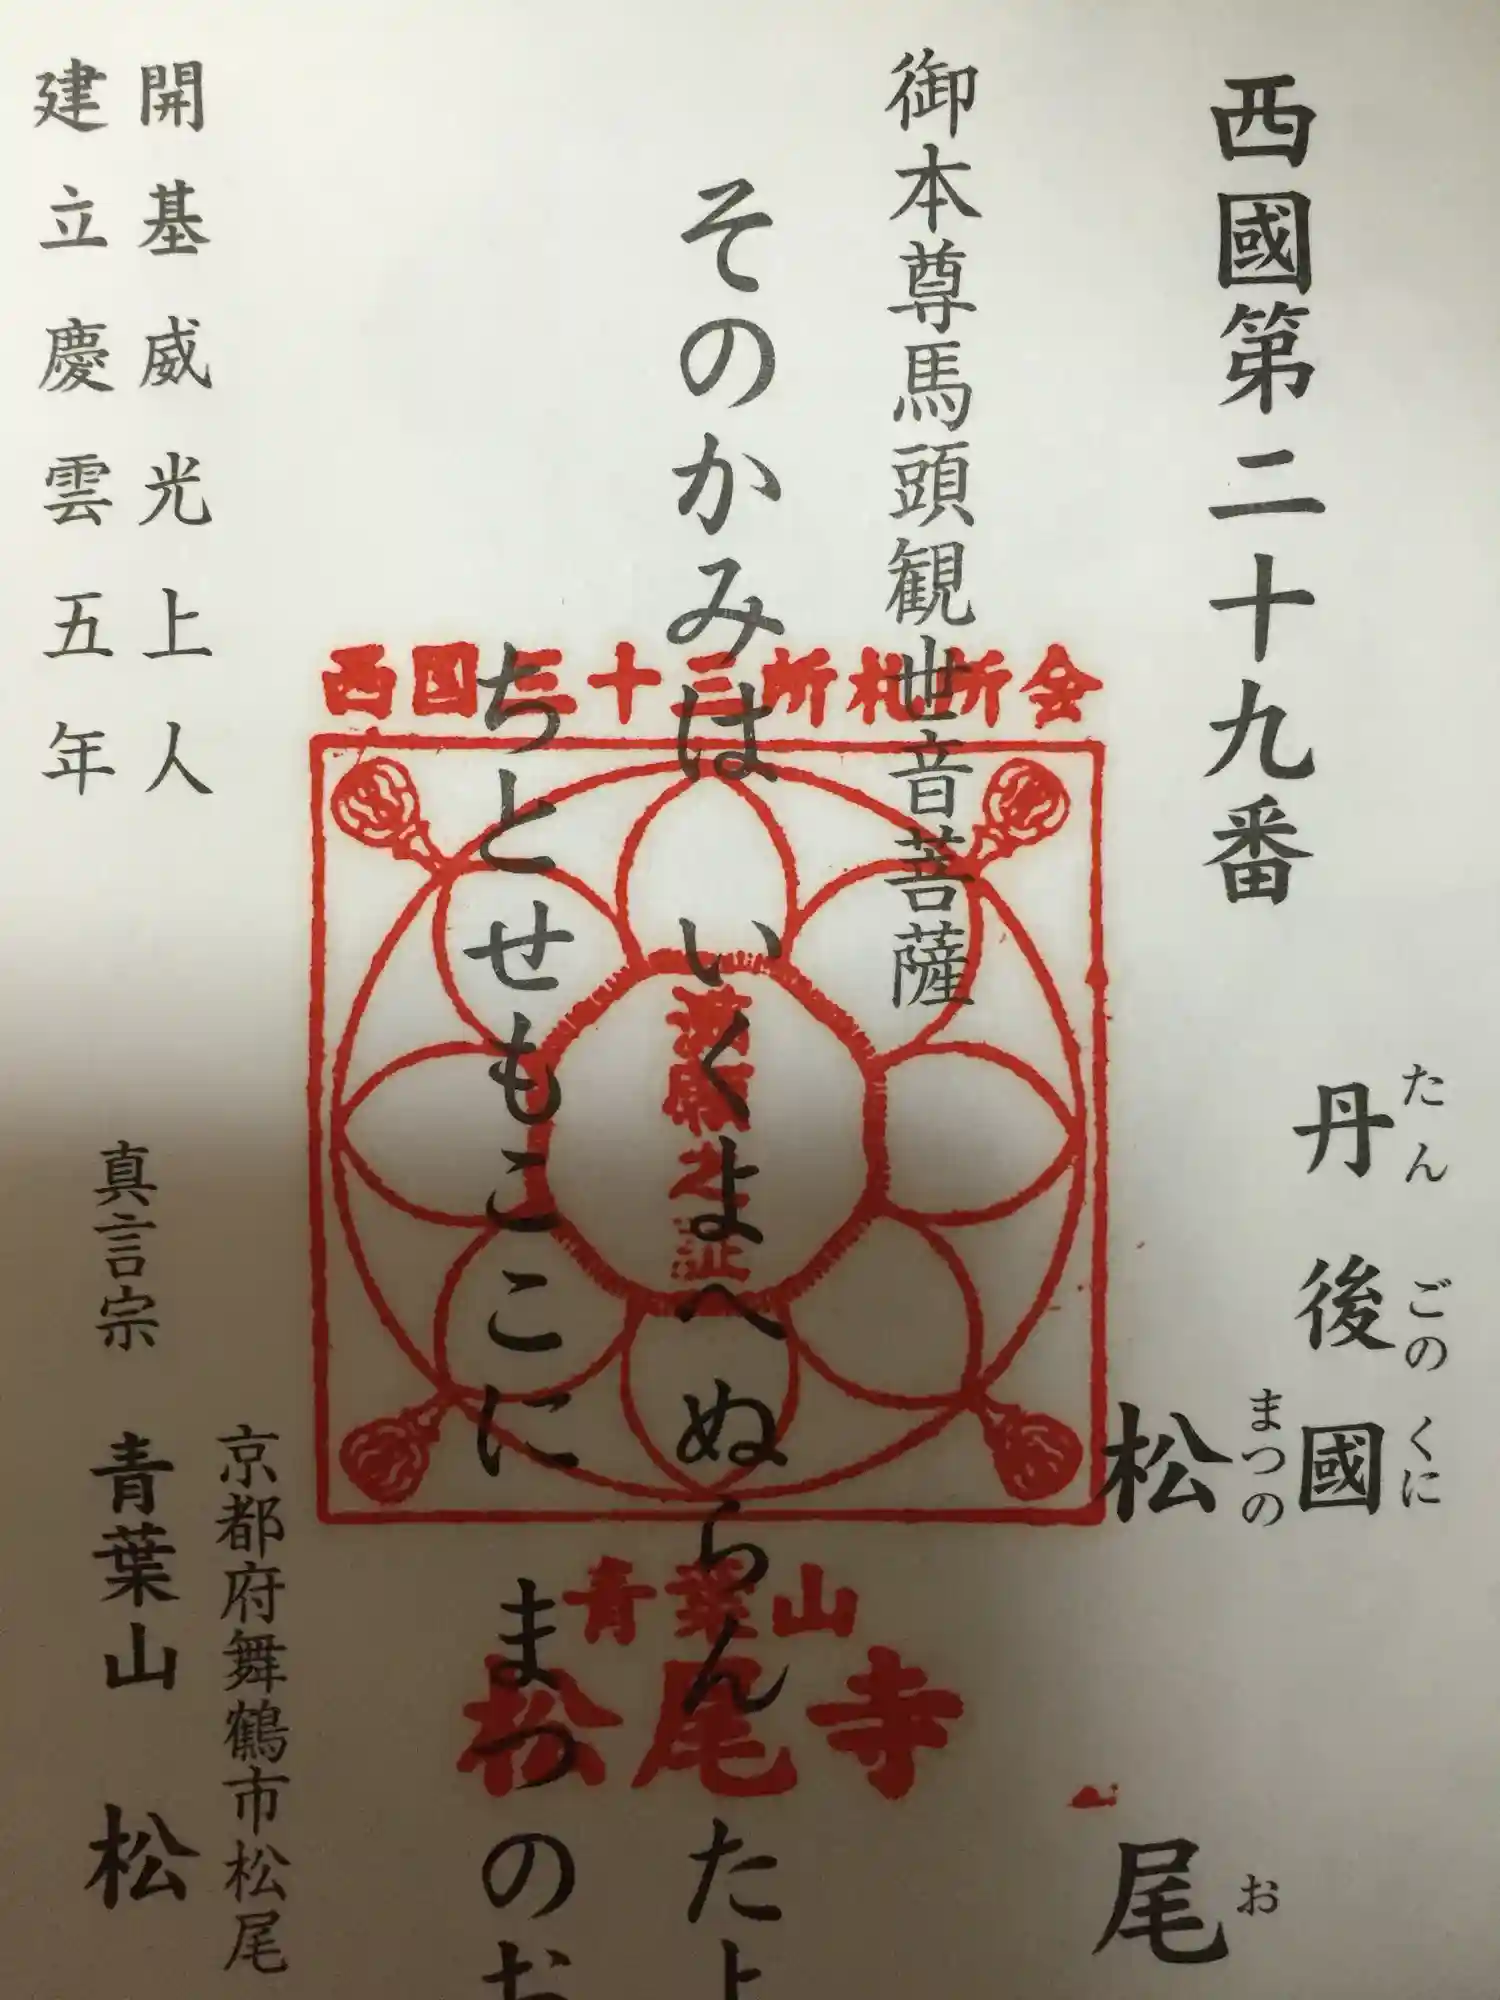 西國第二十九番
丹後國
たんごのくに
松尾
まつのお
御本尊馬頭観世音菩薩
そのかみは いくよへぬらん た
ちとせもここに まつのお
開基威光上人
建立慶雲五年
京都府舞鶴市松尾
真言宗 青葉山 松
西国三十三所札所会
満願之証
青葉山
松尾寺